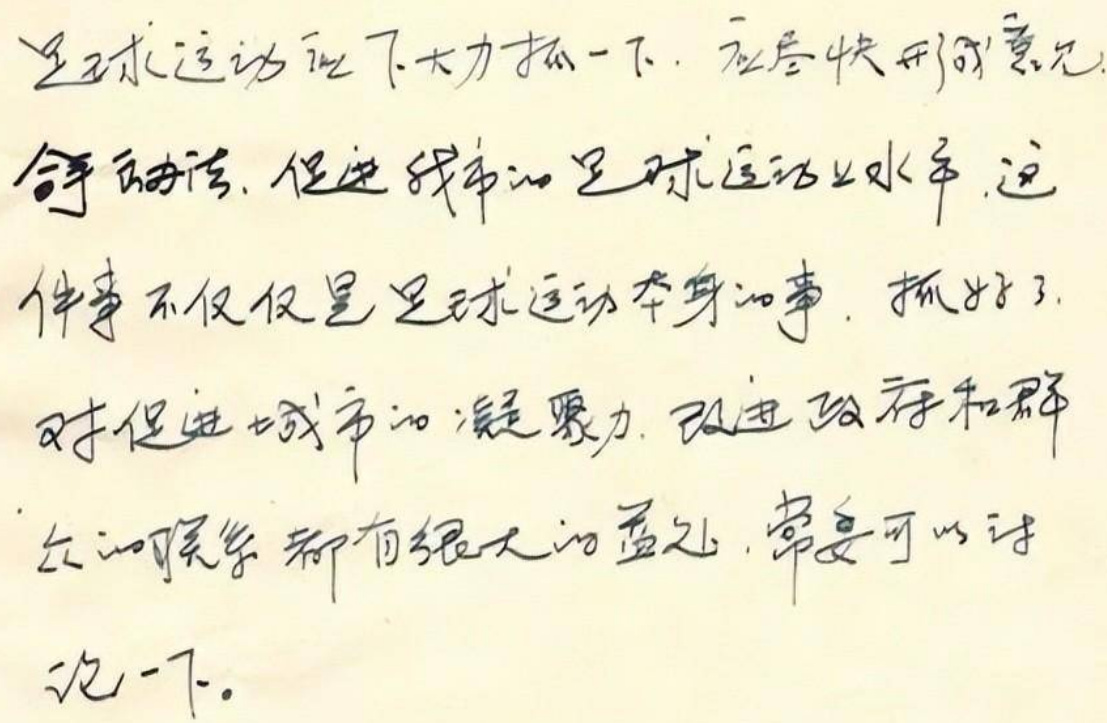 足球运动应下大力抓一下.应尽快形成意见
办法.促进我市的足球运动上水平.这
件事不仅仅是足球运动本身的事.抓好了.
对促进城市的凝聚力.改进政府和群
众的联系都有很大的益处.常委可以讨
论一下。